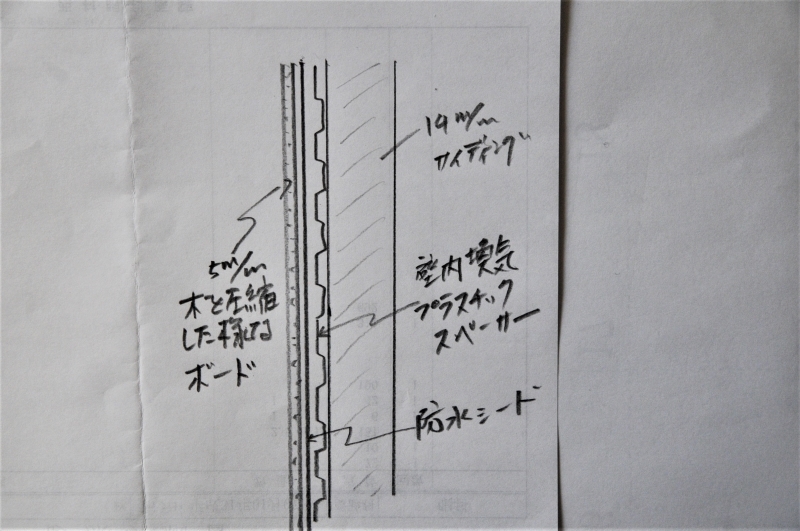 19m/m
サイディング
5m/m
木を圧縮
した様な
ボード
壁内換気
プラスチック
スペーサー
防水シード